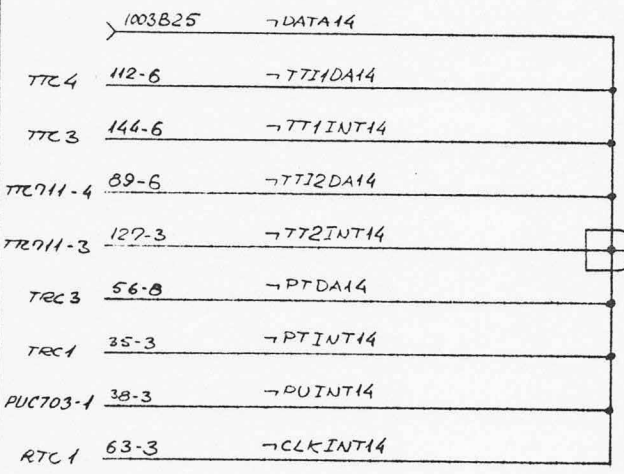 1003B25 ¬DATA14
TTC4 112-6 ¬TTI1DA14
TTC3 144-6 ¬TT1INT14
TTC711-4 89-6 ¬TTI2DA14
TTC711-3 127-3 ¬TT2INT14
TRC3 56-8 ¬PTDA14
TRC1 35-3 ¬PTINT14
PUC703-1 38-3 ¬PUINT14
RTC1 63-3 ¬CLKINT14